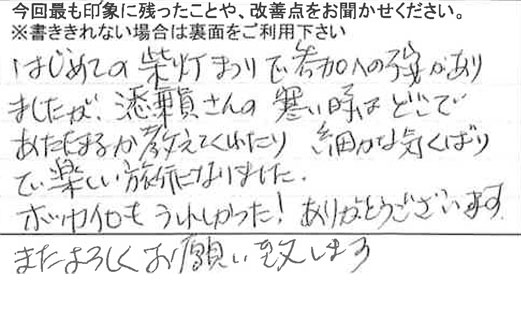 今回最も印象に残ったことや、改善点をお聞かせください。
※書ききれない場合は裏面をご利用下さい
はじめての柴灯まつりで参加への不安があり
ましたが、添乗員さんの寒い時はどこで
あたたまるか教えてくれたり 細かな気くばり
で楽しい旅行になりました.
ホッカイロもうれしかった!ありがとうございます.
またよろしくお願い致します